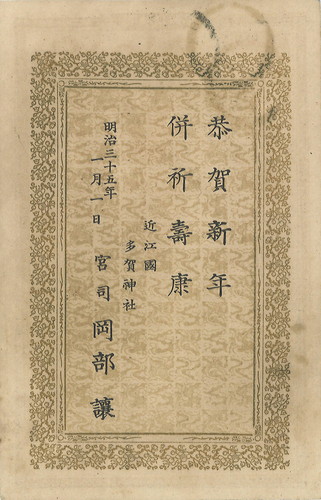 恭賀新年
併祈壽康
近江國
多賀神社
宮司岡部讓
明治三十五年
一月一日